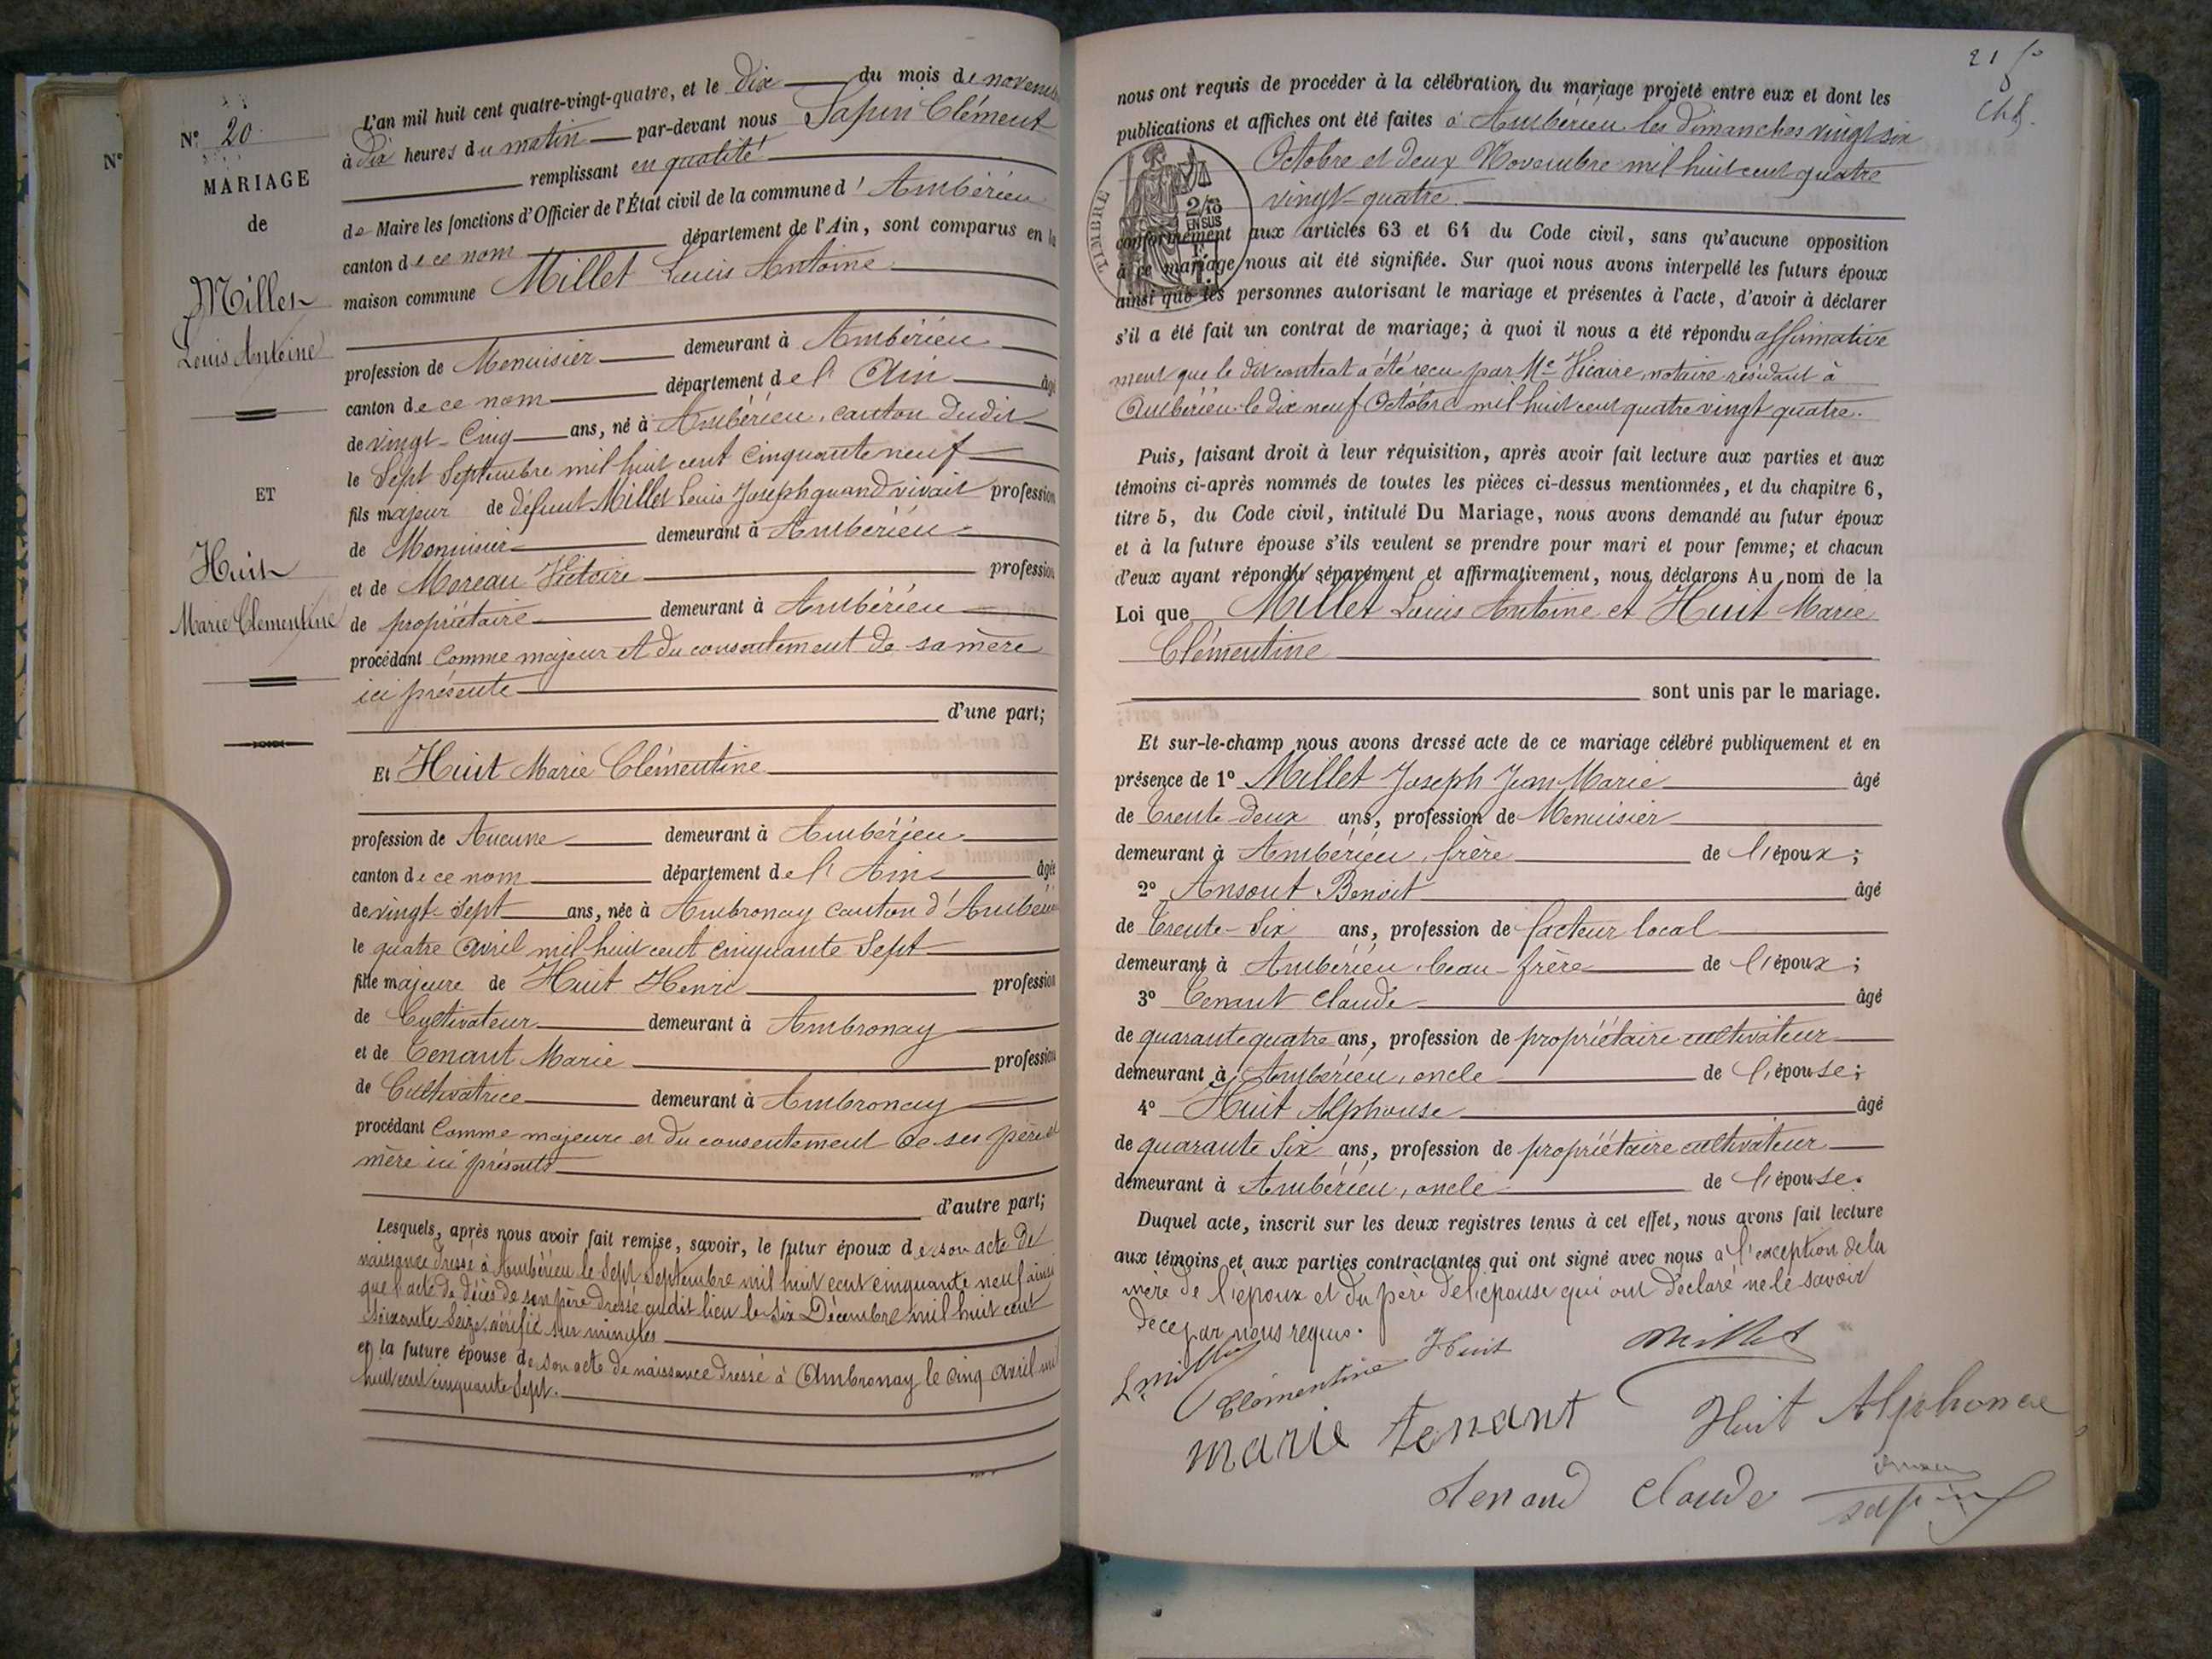 N° 20
MARIAGE
de
Millet
Louis Antoine
ET
Huit
Marie Clementine
N°
L'an mil huit cent quatre-vingt-quatre, et le Dix du mois de novemb
à Dix heures du matin par-devant nous Sapin Clément
remplissant en qualité
de Maire les fonctions d'Officier de l'État civil de la commune d'Ambérieu
canton de ce nom département de l'Ain, sont comparus en la
maison commune Millet Louis Antoine
profession de Menuisier demeurant à Ambérieu
canton de ce nom département de l'Ain âgé
de vingt-Cinq ans, né à Ambérieu, canton dudit
le Sept Septembre mil huit cent Cinquante neuf
fils majeur de défunt Millet Louis Joseph quand vivait profession
de Menuisier demeurant à Ambérieu
et de Moreau Victoire profession
de propriétaire demeurant à Ambérieu
procédant Comme majeur et du consentement de sa mère
ici présente
d'une part;
Et Huit Marie Clémentine
profession de Aucune demeurant à Ambérieu
canton de ce nom département de l'Ain âgée
de vingt-Sept ans, née à Ambronay canton d'Ambérieu
le quatre Avril mil huit cent cinquante Sept
fille majeure de Huit Henri profession
de Cultivateur demeurant à Ambronay
et de Tenant Marie profession
de Cultivatrice demeurant à Ambronay
procédant Comme majeure et du consentement de ses père et
mère ici présents
d'autre part;
Lesquels, après nous avoir fait remise, savoir, le futur époux de son acte de
naissance dressé à Ambérieu le Sept Septembre mil huit cent cinquante neuf ainsi
que l'acte de décès de son père dressé audit lieu le Six Décembre mil huit cent
soixante Seize, vérifié sur minutes
et la future épouse de son acte de naissance dressé à Ambronay le cinq Avril mil
huit cent cinquante Sept.
21
nous ont requis de procéder à la célébration du mariage projeté entre eux et dont les
publications et affiches ont été faites à Ambérieu les dimanches vingt six
Octobre et deux Novembre mil huit cent quatre
vingt-quatre
TIMBRE
2/10
EN SUS
conformément aux articles 63 et 64 du Code civil, sans qu'aucune opposition
à ce mariage nous ait été signifiée. Sur quoi nous avons interpellé les futurs époux
ainsi que les personnes autorisant le mariage et présentes à l'acte, d'avoir à déclarer
s'il a été fait un contrat de mariage; à quoi il nous a été répondu affirmative
ment que le dit contrat a été reçu par Me Vicaire, notaire résidant à
Ambérieu le dix neuf Octobre mil huit cent quatre vingt quatre.
Puis, faisant droit à leur réquisition, après avoir fait lecture aux parties et aux
témoins ci-après nommés de toutes les pièces ci-dessus mentionnées, et du chapitre 6,
titre 5, du Code civil, intitulé Du Mariage, nous avons demandé au futur époux
et à la future épouse s'ils veulent se prendre pour mari et pour femme; et chacun
d'eux ayant répondu séparément et affirmativement, nous déclarons Au nom de la
Loi que Millet Louis Antoine et Huit Marie
Clémentine
sont unis par le mariage.
Et sur-le-champ nous avons dressé acte de ce mariage célébré publiquement et en
présence de 1° Millet Joseph Jean Marie âgé
de Trente Deux ans, profession de Menuisier
demeurant à Ambérieu, frère de l'époux;
2° Ansout Benoit âgé
de Trente-Six ans, profession de facteur local
demeurant à Ambérieu, beau-frère de l'époux;
3° Tenant Claude âgé
de quarante quatre ans, profession de propriétaire cultivateur
demeurant à Ambérieu, oncle de l'épouse;
4° Huit Alphonse âgé
de quarante Six ans, profession de propriétaire cultivateur
demeurant à Ambérieu, oncle de l'épouse.
Duquel acte, inscrit sur les deux registres tenus à cet effet, nous avons fait lecture
aux témoins et aux parties contractantes qui ont signé avec nous à l'exception de la
mère de l'époux et du père de l'épouse qui ont déclaré ne le savoir
de ce par nous requis.
L. Millet
Clémentine Huit
Millet
marie tenant
Huit Alphonse
Tenand Claude
sapin